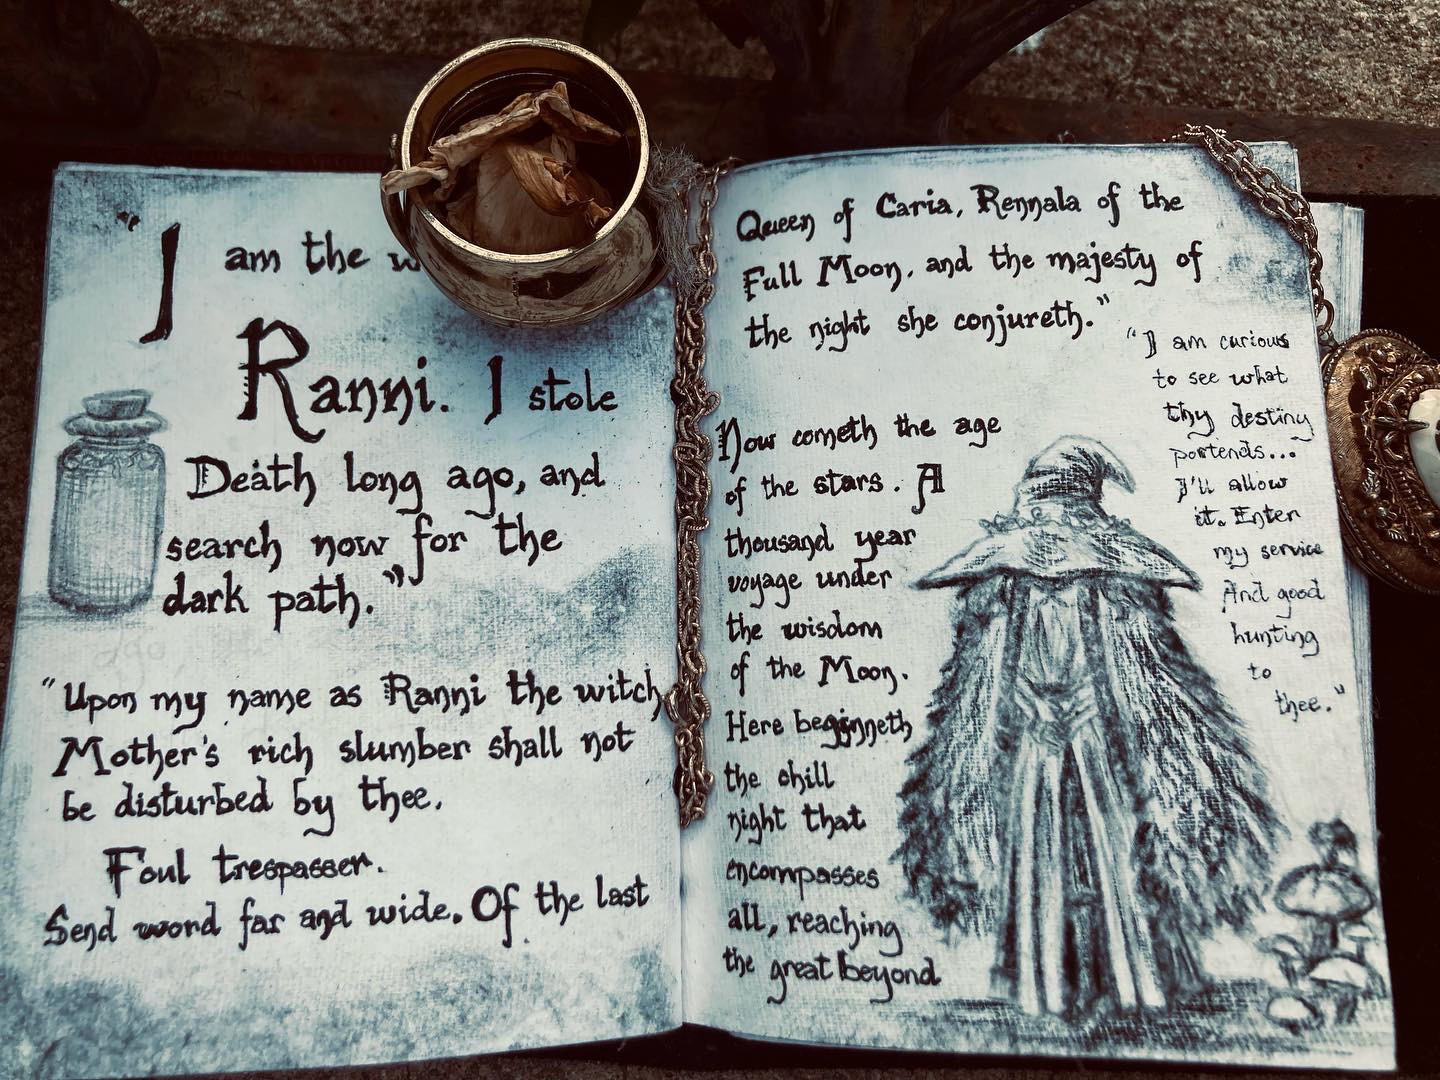 "I am the
Ranni. I stole
Death long ago, and
search now for the
dark path."
"Upon my name as Ranni the witch
Mother's rich slumber shall not
be disturbed by thee.
Foul trespasser.
Send word far and wide. Of the last
Queen of Caria, Rennala of the
Full Moon, and the majesty of
the night she conjureth."
Now cometh the age
of the stars. A
thousand year
voyage under
the wisdom
of the Moon.
Here beginneth
the chill
night that
encompasses
all, reaching
the great beyond
"I am curious
to see what
thy destiny
portends...
I'll allow
it. Enter
my service
And good
hunting
to
thee."